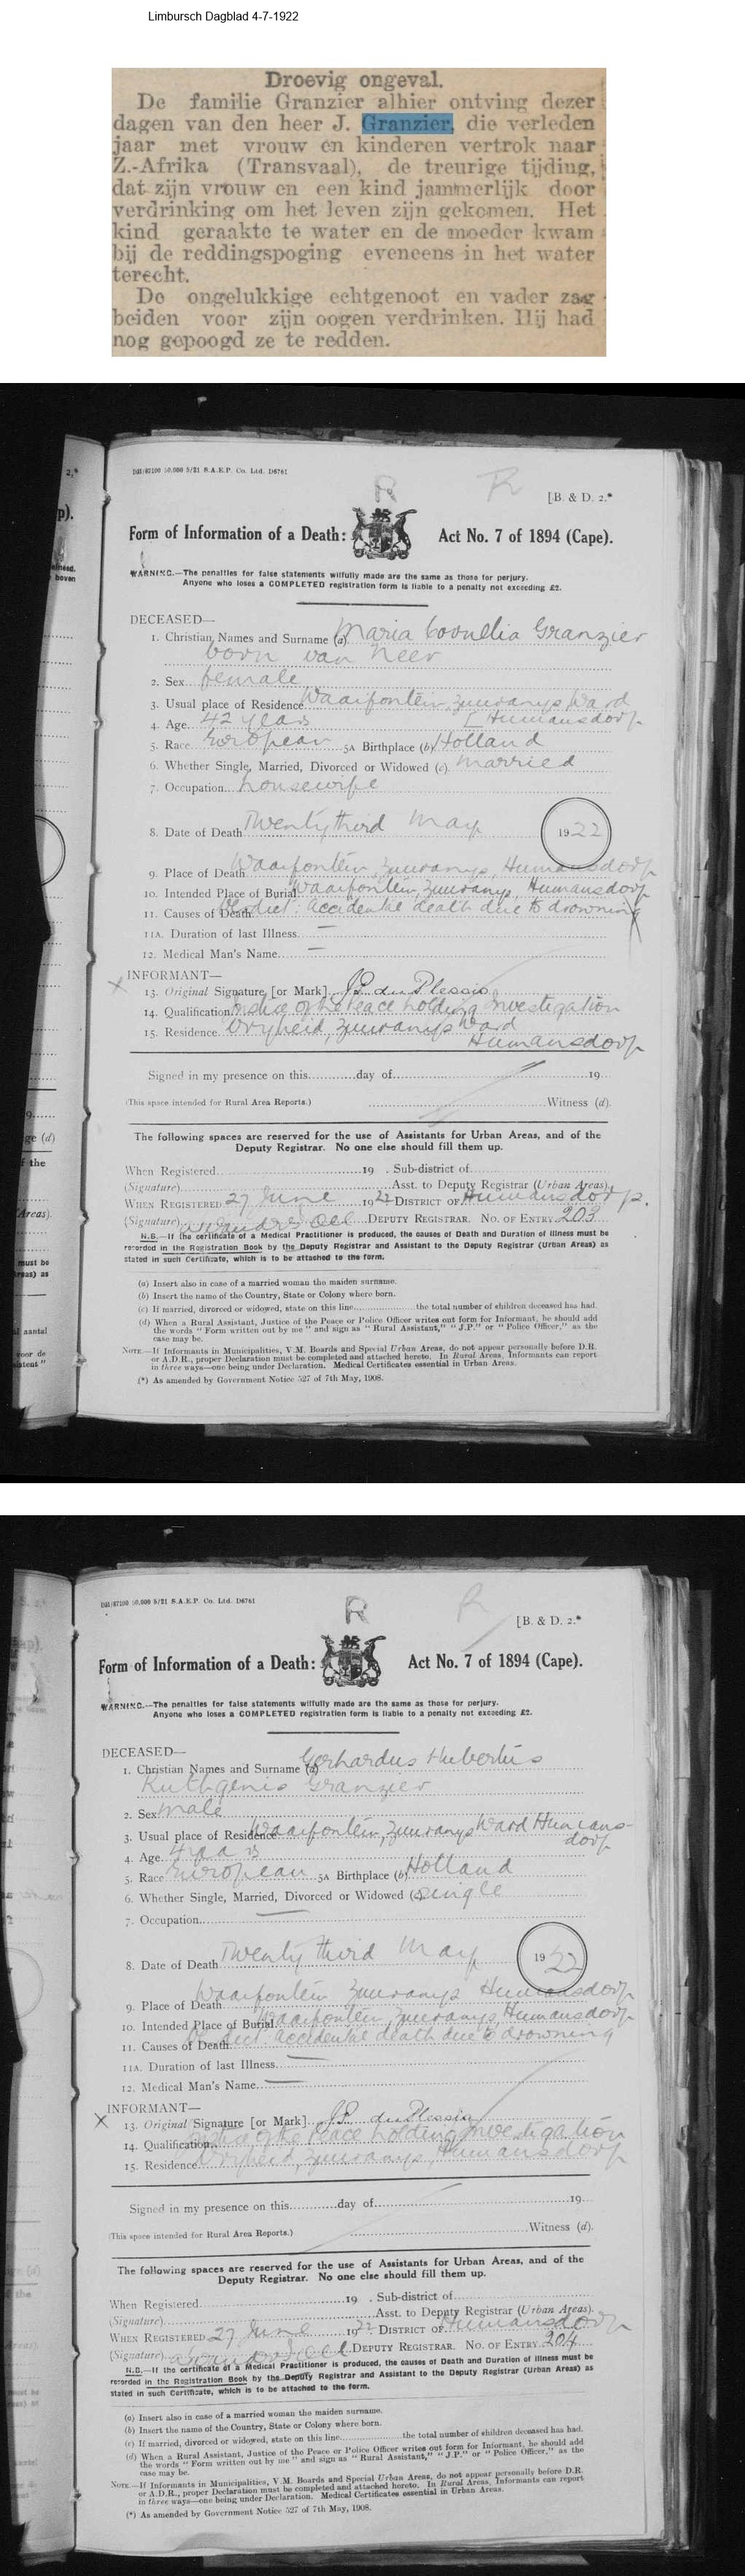 Limbursch Dagblad 4-7-1922
Droevig ongeval.
De familie Granzier alhier ontving dezer
dagen van den heer J. Granzier, die verleden
jaar met vrouw en kinderen vertrok naar
Z.-Afrika (Transvaal), de treurige tijding,
dat zijn vrouw en een kind jammerlijk door
verdrinking om het leven zijn gekomen. Het
kind geraakte te water en de moeder kwam
bij de reddingspoging eveneens in het water
terecht.
De ongelukkige echtgenoot en vader zag
beiden voor zijn oogen verdrinken. Hij had
nog gepoogd ze te redden.
50,000 5/21 S.A.E.P. Co. Ltd. D6761
R R
[B. & D. 2.*
Form of Information of a Death: Act No. 7 of 1894 (Cape).
WARNING.—The penalties for false statements wilfully made are the same as those for perjury.
Anyone who loses a COMPLETED registration form is liable to a penalty not exceeding £2.
DECEASED—
1. Christian Names and Surname (a) Maria Cornelia Granzier
born van Neer
2. Sex female
3. Usual place of Residence Waaifontein, Zuuranys Ward
4. Age 42 years [Humansdorp
5. Race European 5A Birthplace (b) Holland
6. Whether Single, Married, Divorced or Widowed (c) married
7. Occupation housewife
8. Date of Death Twenty third May 1922
9. Place of Death Waaifontein, Zuuranys, Humansdorp
10. Intended Place of Burial Waaifontein, Zuuranys, Humansdorp
11. Causes of Death Verdict: Accidental death due to drowning
11A. Duration of last Illness —
12. Medical Man's Name —
INFORMANT—
13. Original Signature [or Mark] J.P. du Plessis
14. Qualification Justice of the Peace holding investigation
15. Residence Vryheid, Zuuranys Ward
Humansdorp
Signed in my presence on this day of 19
(This space intended for Rural Area Reports.) Witness (d).
The following spaces are reserved for the use of Assistants for Urban Areas, and of the
Deputy Registrar. No one else should fill them up.
When Registered 19 . Sub-district of
(Signature) Asst. to Deputy Registrar (Urban Areas).
WHEN REGISTERED 27 June 1922 DISTRICT OF Humansdorp.
(Signature) DEPUTY REGISTRAR. NO. OF ENTRY 203
N.B.—If the certificate of a Medical Practitioner is produced, the causes of Death and Duration of Illness must be
recorded in the Registration Book by the Deputy Registrar and Assistant to the Deputy Registrar (Urban Areas) as
stated in such Certificate, which is to be attached to the form.
(a) Insert also in case of a married woman the maiden surname.
(b) Insert the name of the Country, State or Colony where born.
(c) If married, divorced or widowed, state on this line the total number of children deceased has had.
(d) When a Rural Assistant, Justice of the Peace or Police Officer writes out form for Informant, he should add
the words "Form written out by me" and sign as "Rural Assistant," "J.P." or "Police Officer," as the
case may be.
NOTE.—If Informants in Municipalities, V.M. Boards and Special Urban Areas, do not appear personally before D.R.
or A.D.R., proper Declaration must be completed and attached hereto. In Rural Areas, Informants can report
in three ways—one being under Declaration. Medical Certificates essential in Urban Areas.
(*) As amended by Government Notice 527 of 7th May, 1908.
50,000 5/21 S.A.E.P. Co. Ltd. D6761
R R
[B. & D. 2.*
Form of Information of a Death: Act No. 7 of 1894 (Cape).
WARNING.—The penalties for false statements wilfully made are the same as those for perjury.
Anyone who loses a COMPLETED registration form is liable to a penalty not exceeding £2.
DECEASED—
1. Christian Names and Surname (a) Gerhardus Hubertus
Ruthgenis Granzier
2. Sex male
3. Usual place of Residence Waaifontein, Zuuranys Ward Humans-
dorp
4. Age 4
5. Race European 5A Birthplace (b) Holland
6. Whether Single, Married, Divorced or Widowed (c) single
7. Occupation —
8. Date of Death Twenty third May 1922
9. Place of Death Waaifontein Zuuranys Humansdorp
10. Intended Place of Burial Waaifontein, Zuuranys, Humansdorp
11. Causes of Death Verdict: Accidental death due to drowning
11A. Duration of last Illness —
12. Medical Man's Name —
INFORMANT—
13. Original Signature [or Mark] J.P. du Plessis
14. Qualification Justice of the Peace holding investigation
15. Residence Vryheid, Zuuranys, Humansdorp
Signed in my presence on this day of 19
(This space intended for Rural Area Reports.) Witness (d).
The following spaces are reserved for the use of Assistants for Urban Areas, and of the
Deputy Registrar. No one else should fill them up.
When Registered 19 . Sub-district of
(Signature) Asst. to Deputy Registrar (Urban Areas).
WHEN REGISTERED 27 June 1922 DISTRICT OF Humansdorp
(Signature) DEPUTY REGISTRAR. NO. OF ENTRY 204
N.B.—If the certificate of a Medical Practitioner is produced, the causes of Death and Duration of Illness must be
recorded in the Registration Book by the Deputy Registrar and Assistant to the Deputy Registrar (Urban Areas) as
stated in such Certificate, which is to be attached to the form.
(a) Insert also in case of a married woman the maiden surname.
(b) Insert the name of the Country, State or Colony where born.
(c) If married, divorced or widowed, state on this line the total number of children deceased has had.
(d) When a Rural Assistant, Justice of the Peace or Police Officer writes out form for Informant, he should add
the words "Form written out by me" and sign as "Rural Assistant," "J.P." or "Police Officer," as the
case may be.
NOTE.—If Informants in Municipalities, V.M. Boards and Special Urban Areas, do not appear personally before D.R.
or A.D.R., proper Declaration must be completed and attached hereto. In Rural Areas, Informants can report
in three ways—one being under Declaration. Medical Certificates essential in Urban Areas.
(*) As amended by Government Notice 527 of 7th May, 1908.